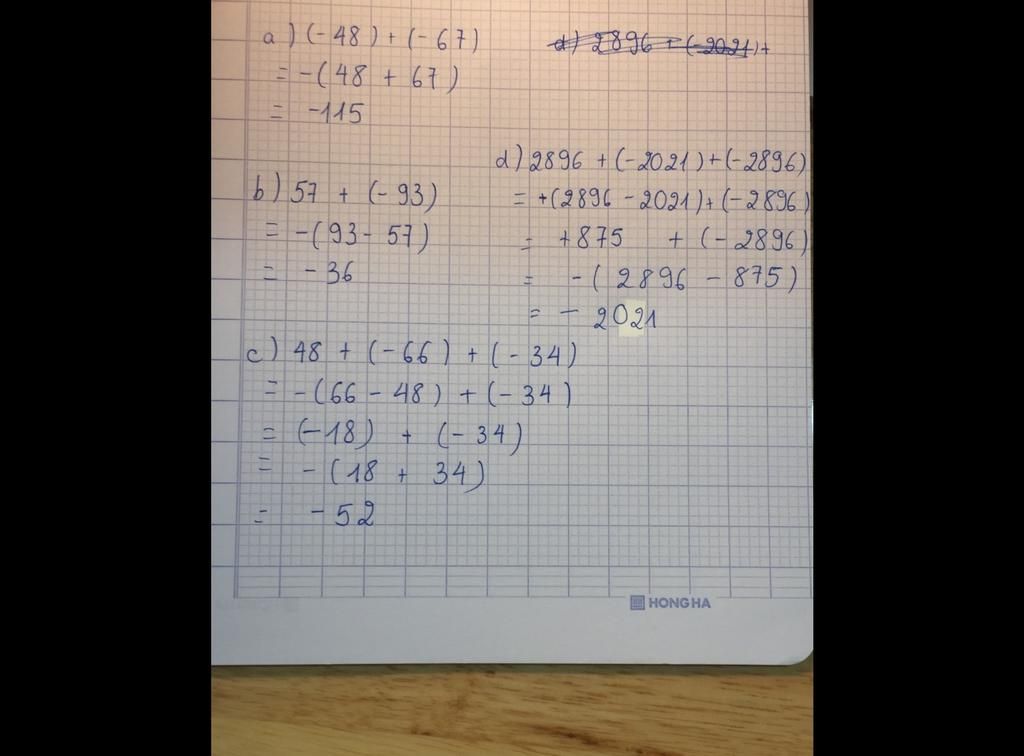 a) (-48) + (-67)
= -(48 + 67)
= -115
b) 57 + (-93)
= -(93 - 57)
= -36
c) 48 + (-66) + (-34)
= -(66 - 48) + (-34)
= (-18) + (-34)
= -(18 + 34)
= -52
d) 2896 + (-2021) +
d) 2896 + (-2021) + (-2896)
= +(2896 - 2021) + (-2896)
= +875 + (-2896)
= -(2896 - 875)
= -2021
HONG HA